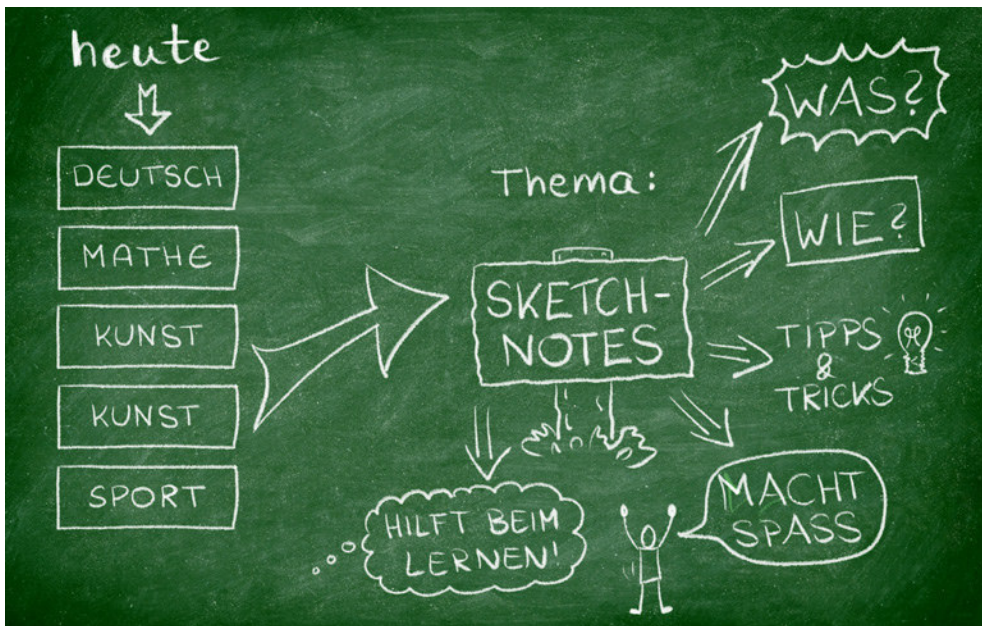 heute
DEUTSCH
MATHE
KUNST
KUNST
SPORT
Thema:
SKETCH-
NOTES
WAS?
WIE?
TIPPS
&
TRICKS
MACHT
SPASS
HILFT BEIM
LERNEN!